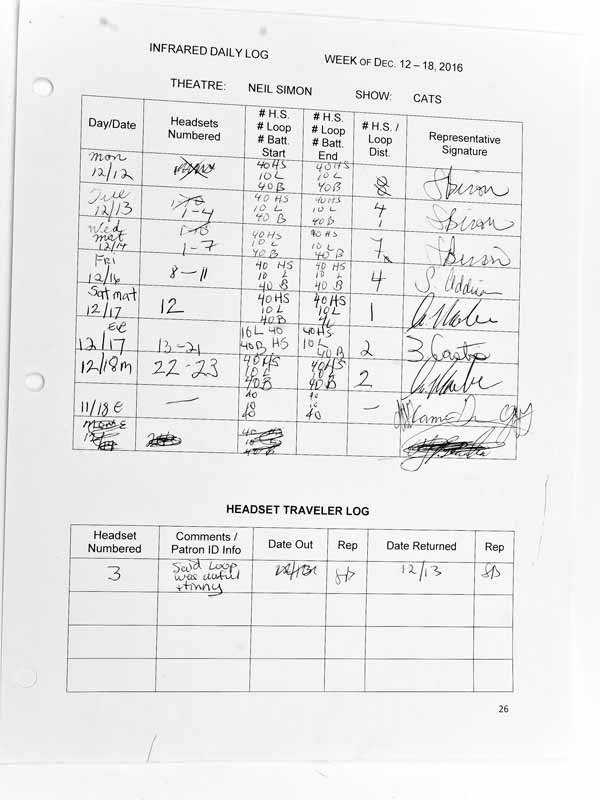 INFRARED DAILY LOG WEEK OF DEC. 12 – 18, 2016
THEATRE: NEIL SIMON SHOW: CATS
Day/Date Headsets Numbered # H.S. # Loop # Batt. Start # H.S. # Loop # Batt. End # H.S. / Loop Dist. Representative Signature
Mon 12/12 40HS 10L 40B 40HS 10L 40B SBiron
Tue 12/13 1-4 40HS 10L 40B 40HS 10L 40B 4 SBiron
Wed mat 12/14 1-7 40HS 10L 40B 40HS 10L 40B 7 SBiron
FRI 12/16 8-11 40 HS 10 L 40 B 40 HS 10 L 40 B 4 S. Addison
Sat mat 12/17 12 40HS 10L 40B 40HS 10L 1
EVE 12/17 13-21 10L 40 HS 40B 40HS 10L 40B 2
12/18m 22-23 40HS 10L 40B 40HS 10L 40B 2
11/18 E — 40 10 40 40 10 40 —
HEADSET TRAVELER LOG
Headset Numbered Comments / Patron ID Info Date Out Rep Date Returned Rep
3 Said Loop was awful + tinny SB 12/13 SB
26